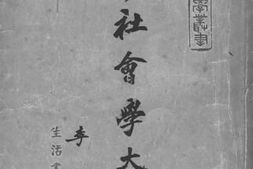 學叢書
社會學大
李
生活